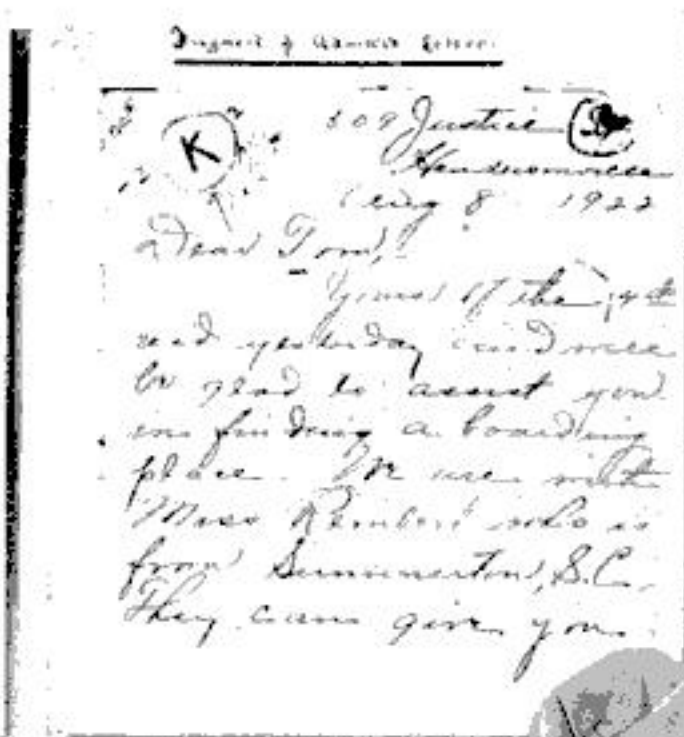 K
309 Justice
Hendersonville
Aug 8 1922
Dear Tom,
Yours of the 4th
rec'd yesterday and will
be glad to assist you
in finding a boarding
place. We are with
Miss who is
from Summerton, S.C.
They can give you